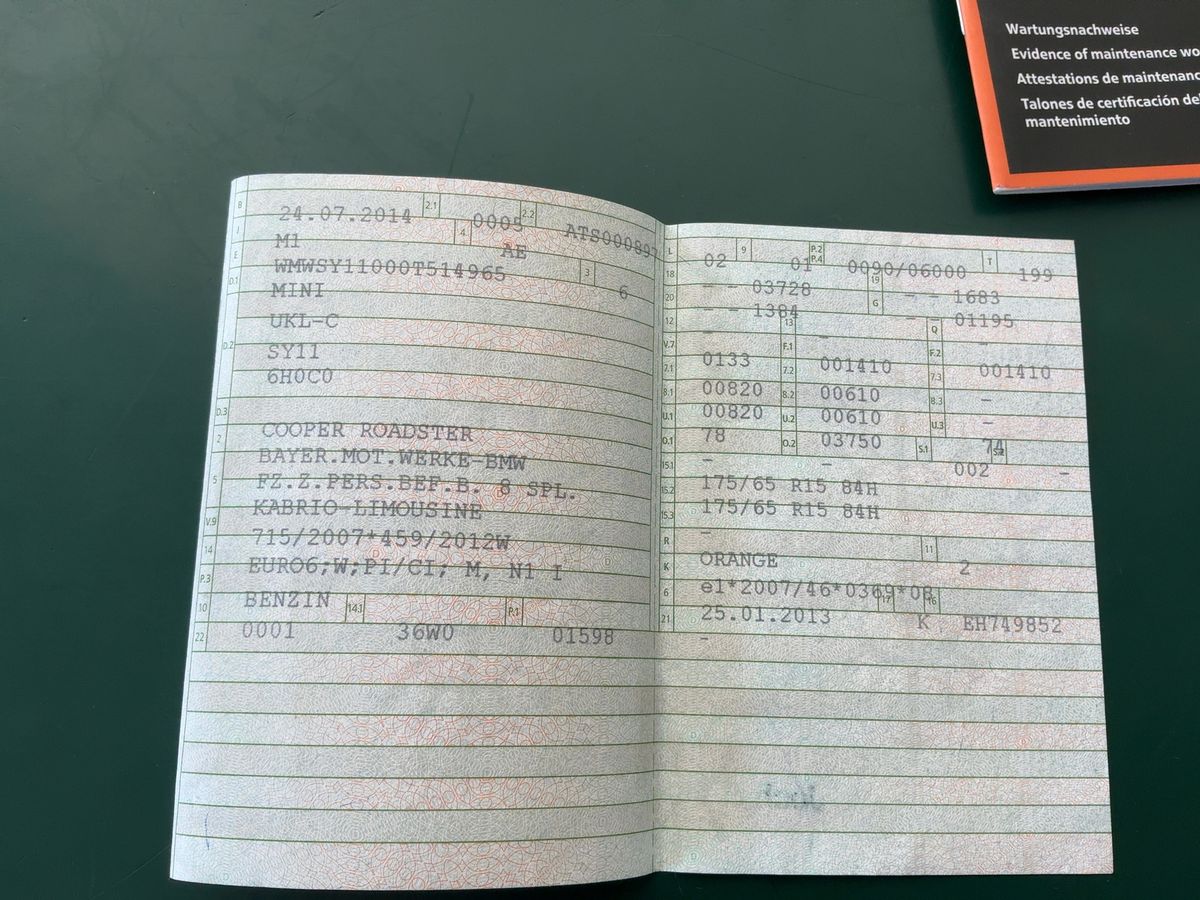 Wartungsnachweise
Evidence of maintenance wo
Attestations de maintenanc
Talones de certificación del
mantenimiento
B 24.07.2014 2.1 0005 2.2 ATS000893
J M1 4 AE
E WMWSY11000T514965 3 6
D.1 MINI
UKL-C
D.2 SY11
6H0C0
D.3
COOPER ROADSTER
2 BAYER.MOT.WERKE-BMW
5 FZ.Z.PERS.BEF.B. 8 SPL.
KABRIO-LIMOUSINE
V.9 715/2007*459/2012W
14 EURO6;W;PI/CI; M, N1 I
P.3 BENZIN
10 0001 14.1 36W0 P.1 01598
22
L 02 9 01 P.2 P.4 0090/06000 T 199
18 - - 03728 19 - - 1683
20 - - 1384 G - - 01195
12 - 13 - Q -
V.7 0133 F.1 001410 F.2 001410
7.1 00820 7.2 00610 7.3 -
8.1 00820 8.2 00610 8.3 -
U.1 78 U.2 03750 U.3 74
O.1 - O.2 - S.1 002 S.2 -
15.1 175/65 R15 84H
15.2 175/65 R15 84H
15.3 -
R ORANGE 11 2
K e1*2007/46*0369*08
6 25.01.2013 17 K 16 EH749852
21 -